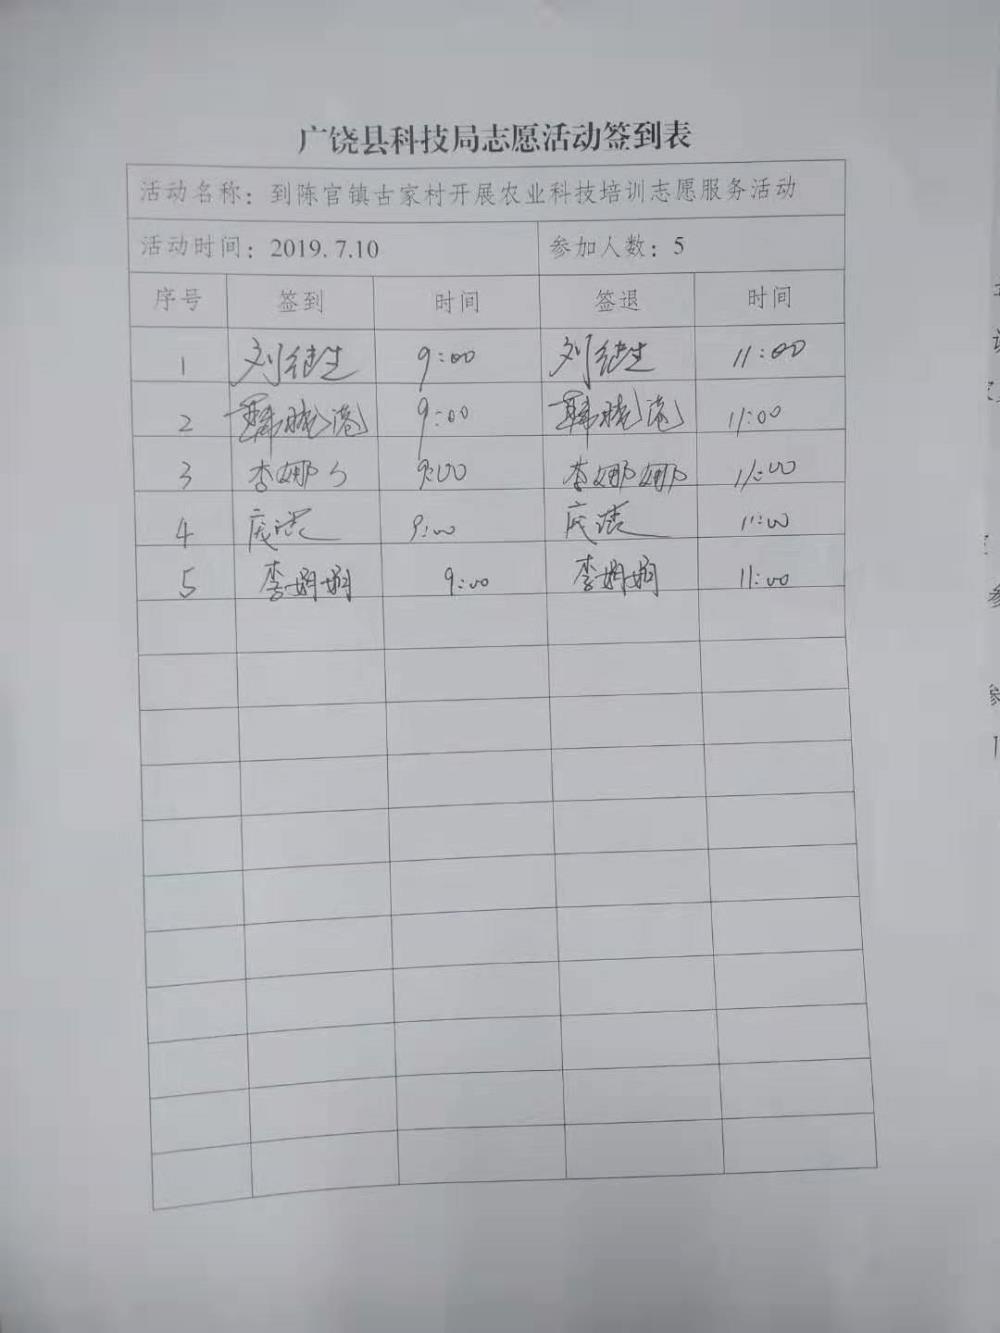 广饶县科技局志愿活动签到表
活动名称：到陈官镇古家村开展农业科技培训志愿服务活动
活动时间：2019.7.10 参加人数：5
序号 签到 时间 签退 时间
1 刘继生 9:00 刘继生 11:00
2 韩晓港 9:00 韩晓港 11:00
3 李娜 9:00 李娜娜 11:00
4 9:00 11:00
5 李娟娟 9:00 李娟娟 11:00